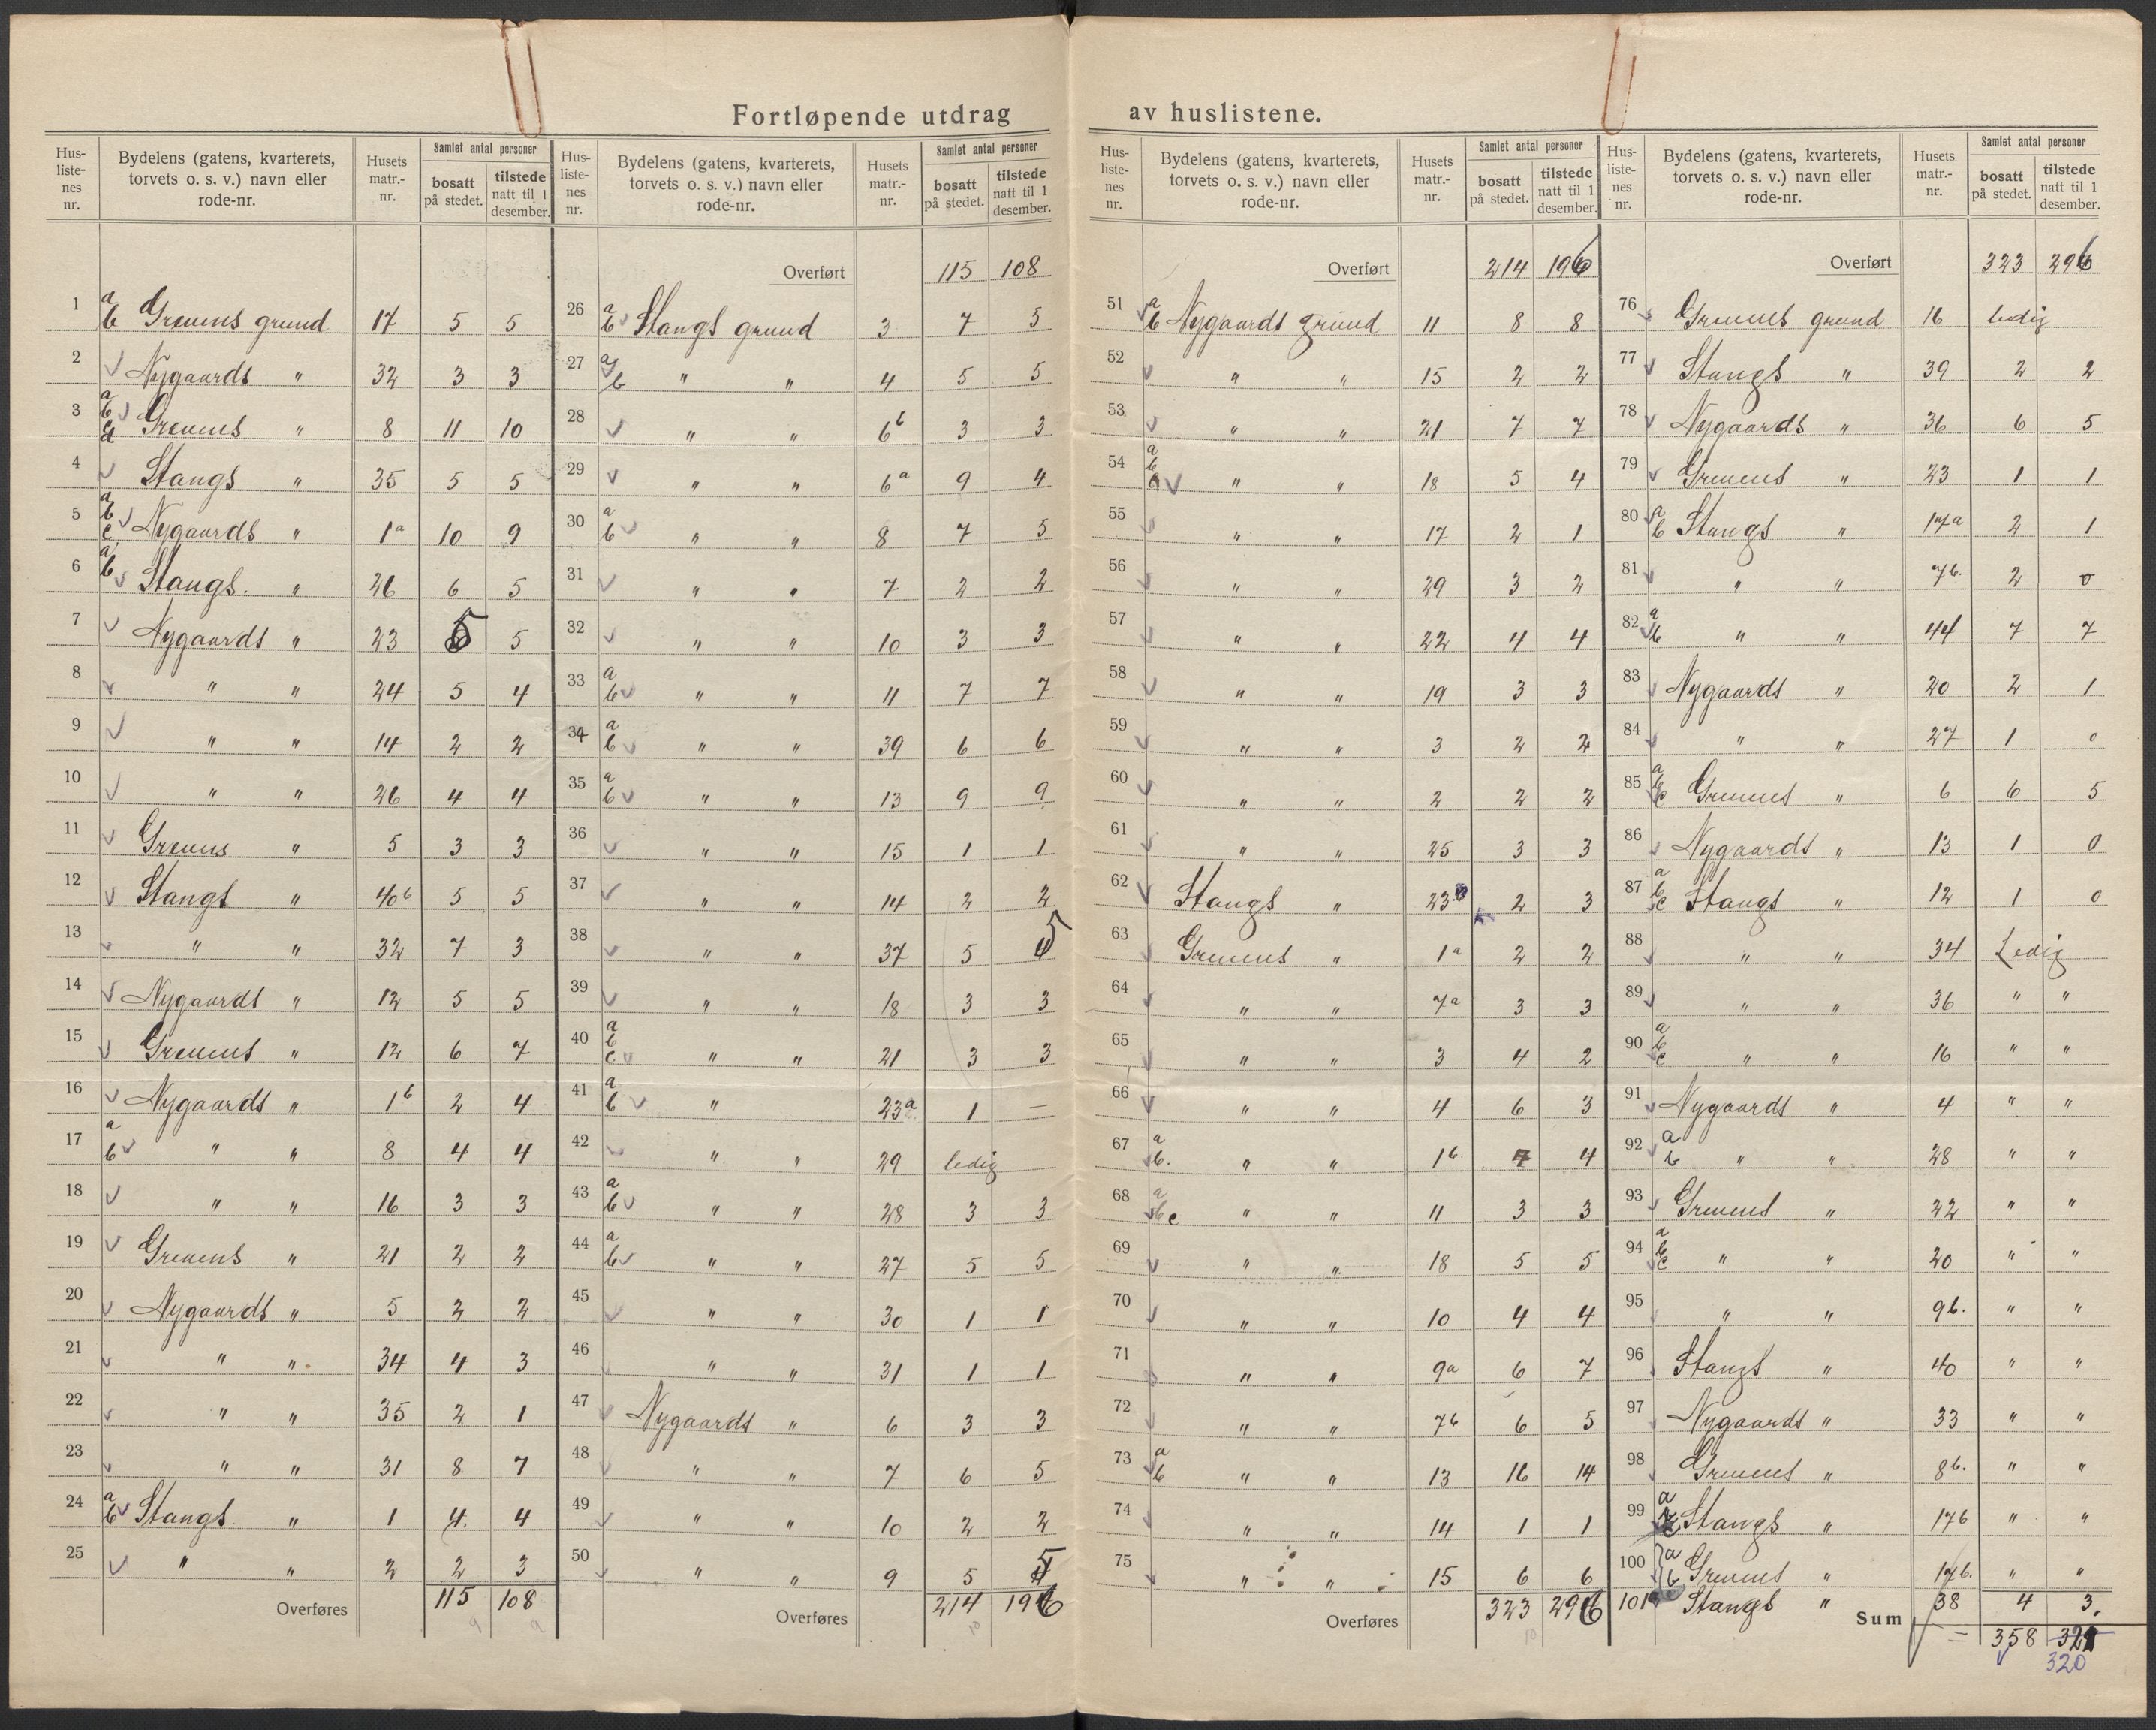 Fortløpende utdrag av huslistene.
Hus-listenes nr. | Bydelens (gatens, kvarterets, torvets o. s. v.) navn eller rode-nr. | Husets matr.-nr. | Samlet antal personer | bosatt på stedet. | tilstede natt til 1 desember.
1 a b Grevens grund 17 5 5
2 Nygaards " 32 3 3
3 a b c d Grevens " 8 11 10
4 Stangs " 35 5 5
5 a b c Nygaards " 1a 10 9
6 a b Stangs. " 26 6 5
7 Nygaards " 23 5 5
8 " " 24 5 4
9 " " 14 2 2
10 " " 26 4 4
11 Grevens " 5 3 3
12 Stangs " 40b 5 5
13 " " 32 7 3
14 Nygaards " 12 5 5
15 Grevens " 12 6 7
16 Nygaards " 1b 2 4
17 a b " " 8 4 4
18 " " 16 3 3
19 Grevens " 21 2 2
20 Nygaards " 5 2 2
21 " " 34 4 3
22 " " 35 2 1
23 " " 31 8 7
24 a b Stangs " 1 4 4
25 " " 2 2 3
Overføres 115 108
Hus-listenes nr. | Bydelens (gatens, kvarterets, torvets o. s. v.) navn eller rode-nr. | Husets matr.-nr. | Samlet antal personer | bosatt på stedet. | tilstede natt til 1 desember.
Overført 115 108
26 a b Stangs grund 3 7 5
27 a b " " 4 5 5
28 " " 6b 3 3
29 " " 6a 9 4
30 a b " " 8 7 5
31 " " 7 2 2
32 " " 10 3 3
33 a b " " 11 7 7
34 a b " " 39 6 6
35 a b " " 13 9 9
36 " " 15 1 1
37 " " 14 2 2
38 " " 37 5 5
39 " " 18 3 3
40 a b c " " 21 3 3
41 a b " 23a 1 —
42 " " 29 ledig
43 a b " " 28 3 3
44 a b " " 27 5 5
45 " " 30 1 1
46 " " 31 1 1
47 Nygaards " 6 3 3
48 " " 7 6 5
49 " " 10 2 2
50 " " 9 5 5
Overføres 214 196
Hus-listenes nr. | Bydelens (gatens, kvarterets, torvets o. s. v.) navn eller rode-nr. | Husets matr.-nr. | Samlet antal personer | bosatt på stedet. | tilstede natt til 1 desember.
Overført 214 196
51 a b Nygaards grund 11 8 8
52 " " 15 2 2
53 " " 21 7 7
54 a b " " 18 5 4
55 " " 17 2 1
56 " " 29 3 2
57 " " 22 4 4
58 " " 19 3 3
59 " " 3 2 2
60 " " 2 2 2
61 " " 25 3 3
62 Stangs " 23b 2 3
63 Grevens " 1a 2 2
64 " " 7a 3 3
65 " " 3 4 2
66 " " 4 6 3
67 a b. " " 1b 4 4
68 a b c " " 11 3 3
69 " " 18 5 5
70 " " 10 4 4
71 " " 9a 6 7
72 " " 7b 6 5
73 a b " " 13 16 14
74 " " 14 1 1
75 " " 15 6 6
Overføres 323 296
Hus-listenes nr. | Bydelens (gatens, kvarterets, torvets o. s. v.) navn eller rode-nr. | Husets matr.-nr. | Samlet antal personer | bosatt på stedet. | tilstede natt til 1 desember.
Overført 323 296
76 Grevens grund 16 ledig
77 Stangs " 39 2 2
78 Nygaards " 36 6 5
79 Grevens " 23 1 1
80 a b Stangs " 17a 2 1
81 " " 7b. 2 0
82 a b " " 44 7 7
83 Nygaards " 20 2 1
84 " " 27 1 0
85 a b c Grevens " 6 6 5
86 Nygaards " 13 1 0
87 a b c Stangs " 12 1 0
88 " " 34 Ledig
89 " " 36 " "
90 a b c " " 16 " "
91 Nygaards " 4 " "
92 a b " " 28 " "
93 Grevens " 22 " "
94 a b c " " 20 " "
95 " " 9b. " "
96 Stangs " 40 " "
97 Nygaards " 33 " "
98 Grevens " 8b. " "
99 a b c Stangs " 17b " "
100 a b Grevens " 17b. " "
101 Stangs " 38 4 3.
Sum = 358 321
320